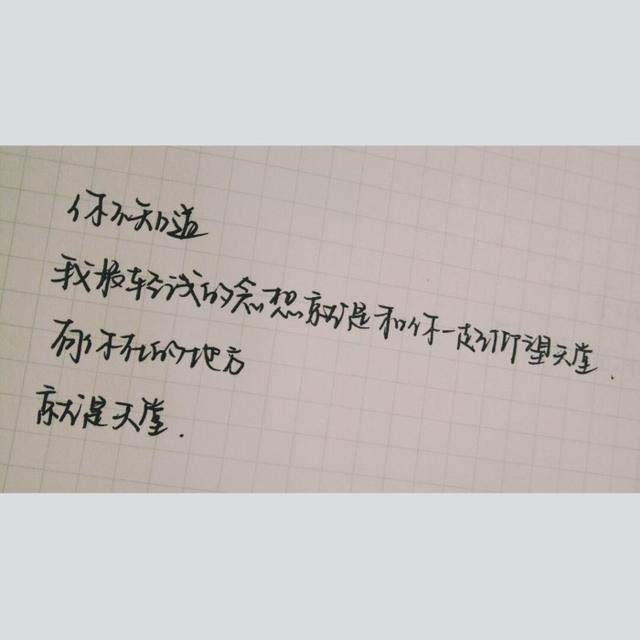 你不知道
我最轻浅的念想就是和你一起仰望天堂.
有你在的地方
就是天堂.